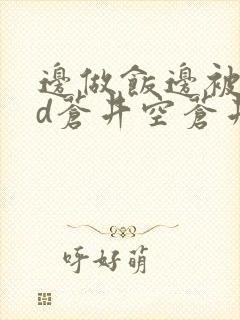 邊做飯邊被
d蒼井空蒼井
呼好萌